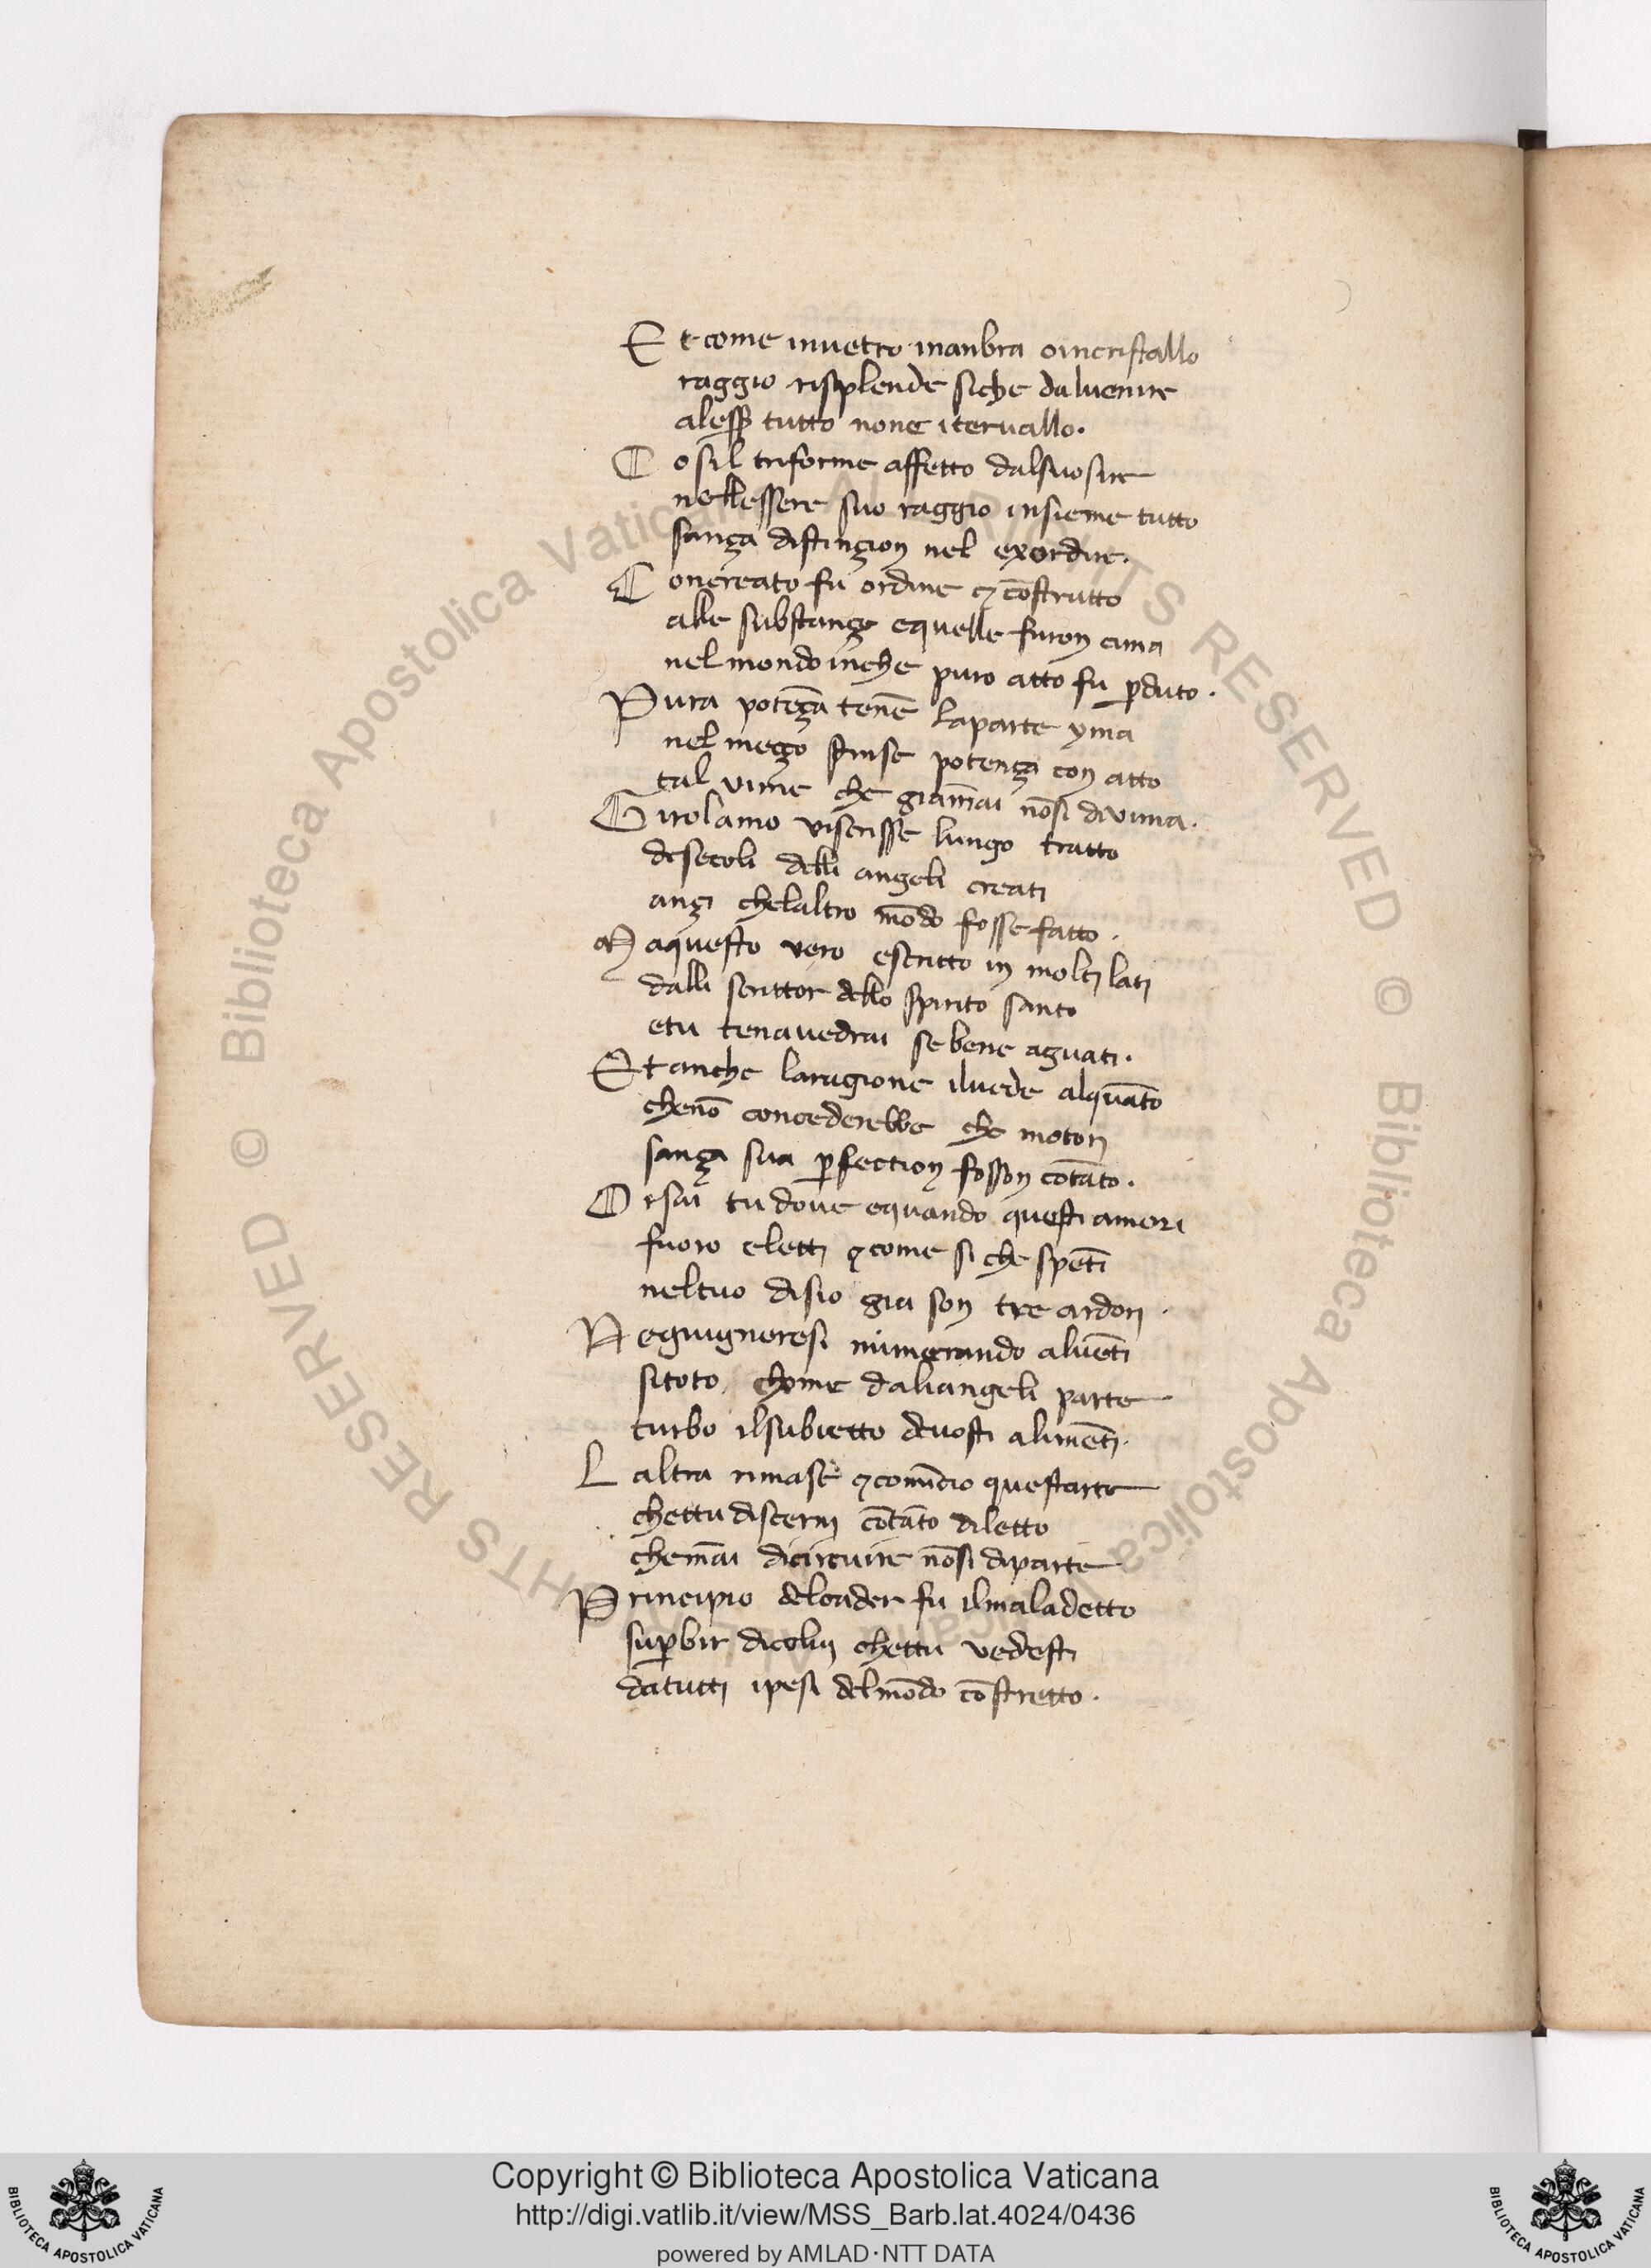 Et come inuetro inanbra oincristallo
raggio risplende siche daluenire
alesser tutto none iteruallo.
Cosil triforme affetto dalsuosire
nellessere suo raggio insieme tutto
sança distinçion nel exordire.
Concreato fu ordine et cōstrutto
alle substançe equelle furon cima
nel mondo inche puro atto fu pduto.
Pura potēça tenē laparte yma
nel meço strinse potença con atto
tal uime che giāmai nōsi diuima.
Girolamo uiscrisse lungo tratto
desecoli delli angeli creati
ançi chelaltro mōdo fosse fatto.
Maquesto vero escritto in molti lati
dalli scrittor dello spirito santo
etu tenauedrai se bene aguati.
Et anche laragione iluede alquāto
chenō concederebbe che motori
sança sua pfection fosson cotāto.
Orsai tu doue equando questi amori
fuoro eletti et come si che spēti
neltuo disio gia son tre ardori.
Negiugneresi numerando aluēti
sitoto, chome daliangeli parte
turbo ilsubietto deuosti alimēti.
Laltra rimase et comīcio questarte
chettu discerni cōtāto diletto
chemāi dicircuire nōsi diparte
Principio delcader fu ilmaladetto
supbir dicolui chettu vedesti
datutti ipesi delmōdo cōstretto.
© Biblioteca Apostolica Vaticana ALL RIGHTS RESERVED
© Biblioteca Apostolica Vaticana ALL RIGHTS RESERVED
Copyright © Biblioteca Apostolica Vaticana
http://digi.vatlib.it/view/MSS_Barb.lat.4024/0436
powered by AMLAD·NTT DATA
BIBLIOTECA APOSTOLICA VATICANA
BIBLIOTECA APOSTOLICA VATICANA